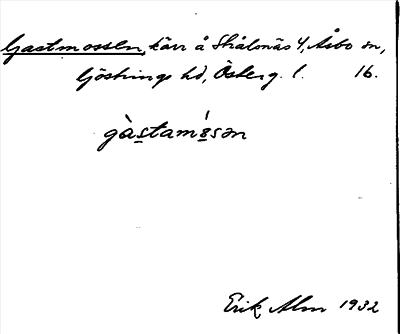 Gastmossen, kärr å Skålnäs 4, Åsbo sn,
Göstrings hd, Österg. l. 16.
gàstamósən
Erik Alm 1932